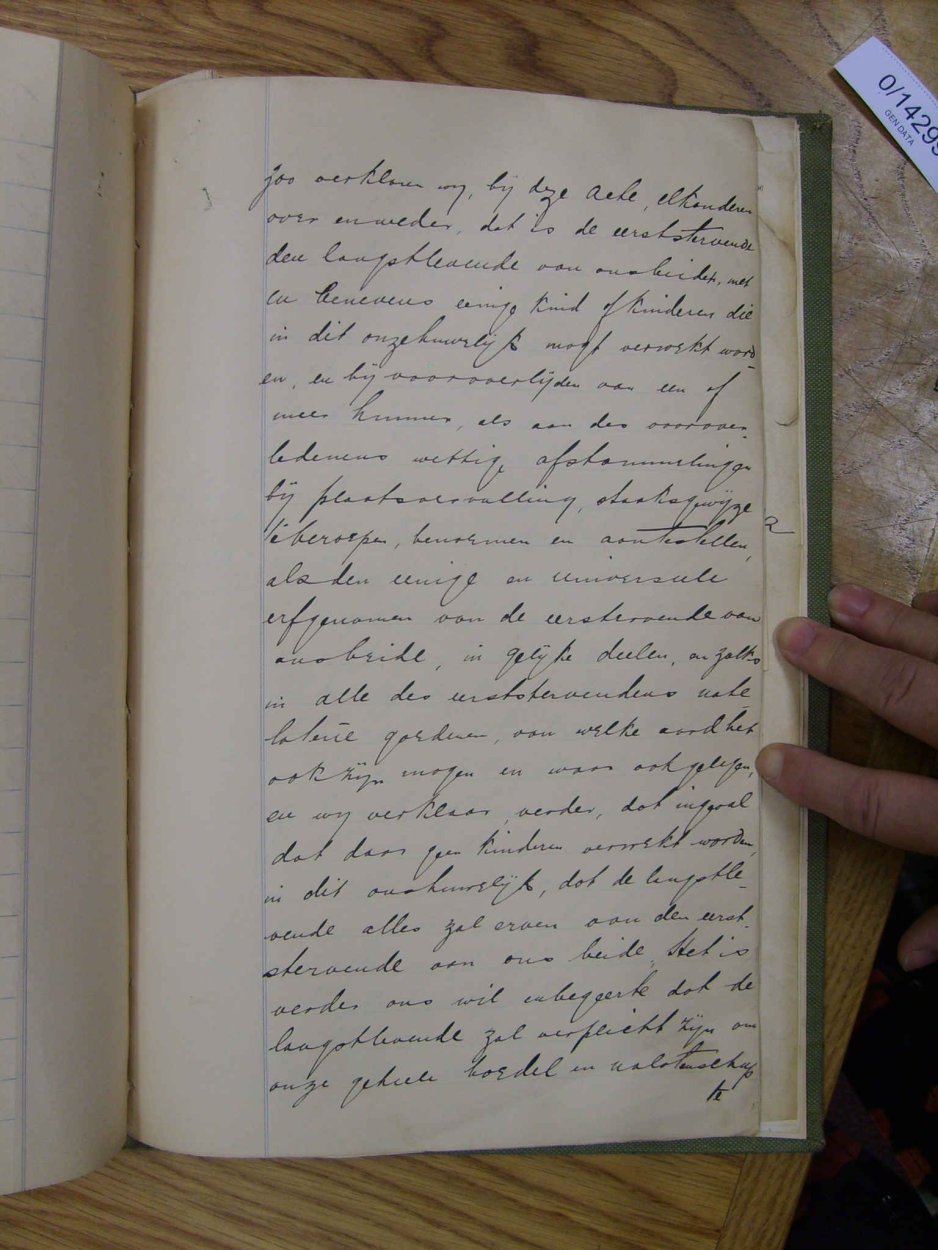 zoo verklaren wy, bij deze Acte, elkanderen
over en weder, dat is de eerststervende
den langstlevende van ons beiden, met
en benevens eenige kind of kinderen die
in dit onze huwelijk mogt verwekt word
en, en bij vooroverlijden van een of
meer hunner, als aan des voorover-
ledenens wettige afstammelingen
bij plaatsvervulling, staaksgewijze
te beroepen, benoemen en aantestellen,
als den eenige en universele
erfgenamen van de eerstervende van
ons beide, in gelijke deelen, en zulks
in alle des eerststervendens nate-
latene goederen, van welke aard het
ook zijn mogen en waar ook gelegen,
en wy verklaar verder, dat ingeval
dat daar geen kinderen verwekt worden,
in dit ons huwelijk, dat de langstle-
vende alles zal erven van den eerst-
stervende van ons beide. Het is
verder ons wil en begeerte dat de
langstlevende zal verplicht zijn om
onze geheele boedel en nalatenschap
te
2
0/14299
GEN DATA